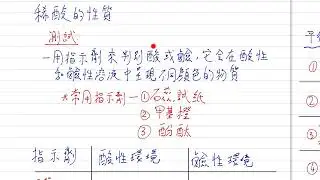 稀酸的性質
測試
－用指示劑來判別酸或鹼,它會在酸性
和鹼性溶液中呈現不同顏色的物質
*常用指示劑－①石蕊試紙
②甲基橙
③酚酞
指示劑 酸性環境 鹼性環境
①
②
③
④